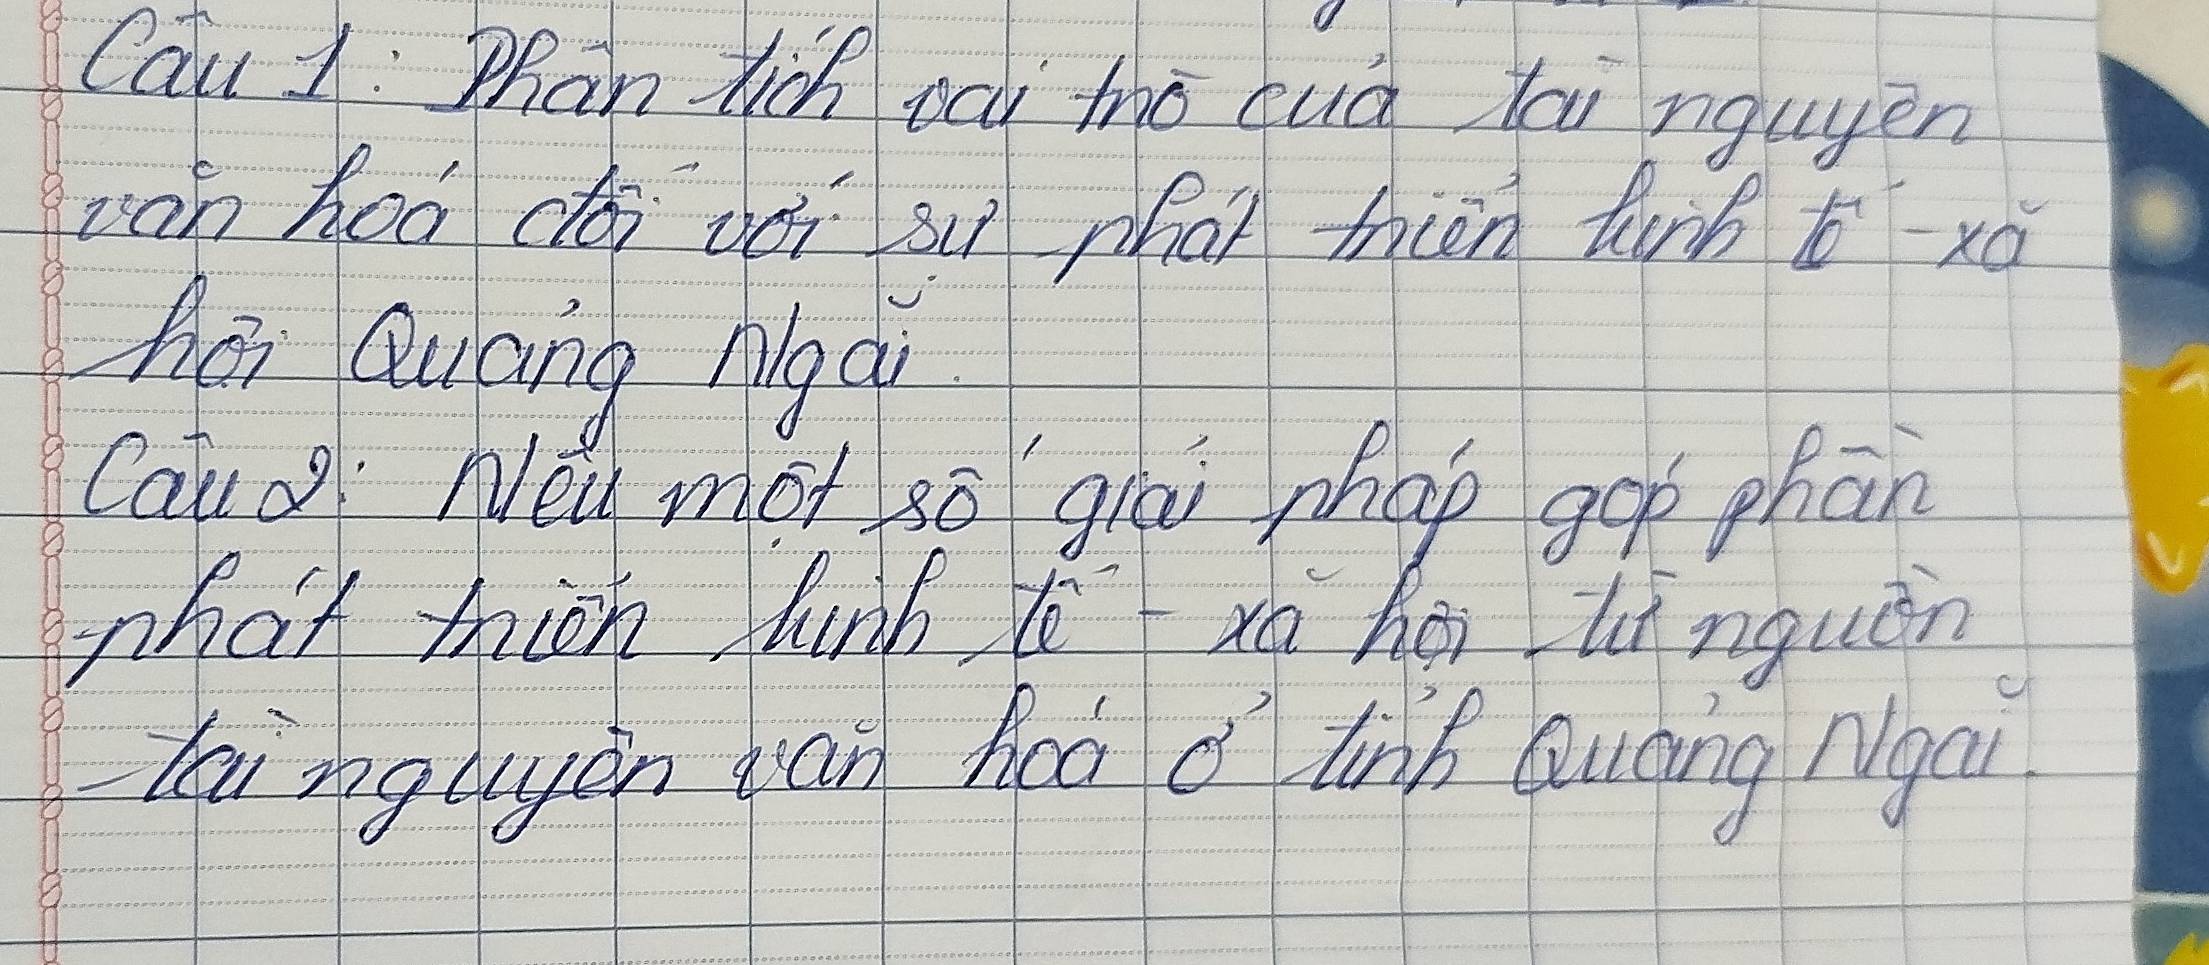 Câu 1: Phân tích vai trò của tài nguyên
văn hoá đối với sự phát triển kinh tế - xã
hội Quảng Ngãi.
Câu 2: Nêu một số giải pháp góp phần
phát triển kinh tế - xã hội từ nguồn
tài nguyên văn hoá ở tỉnh Quảng Ngãi.